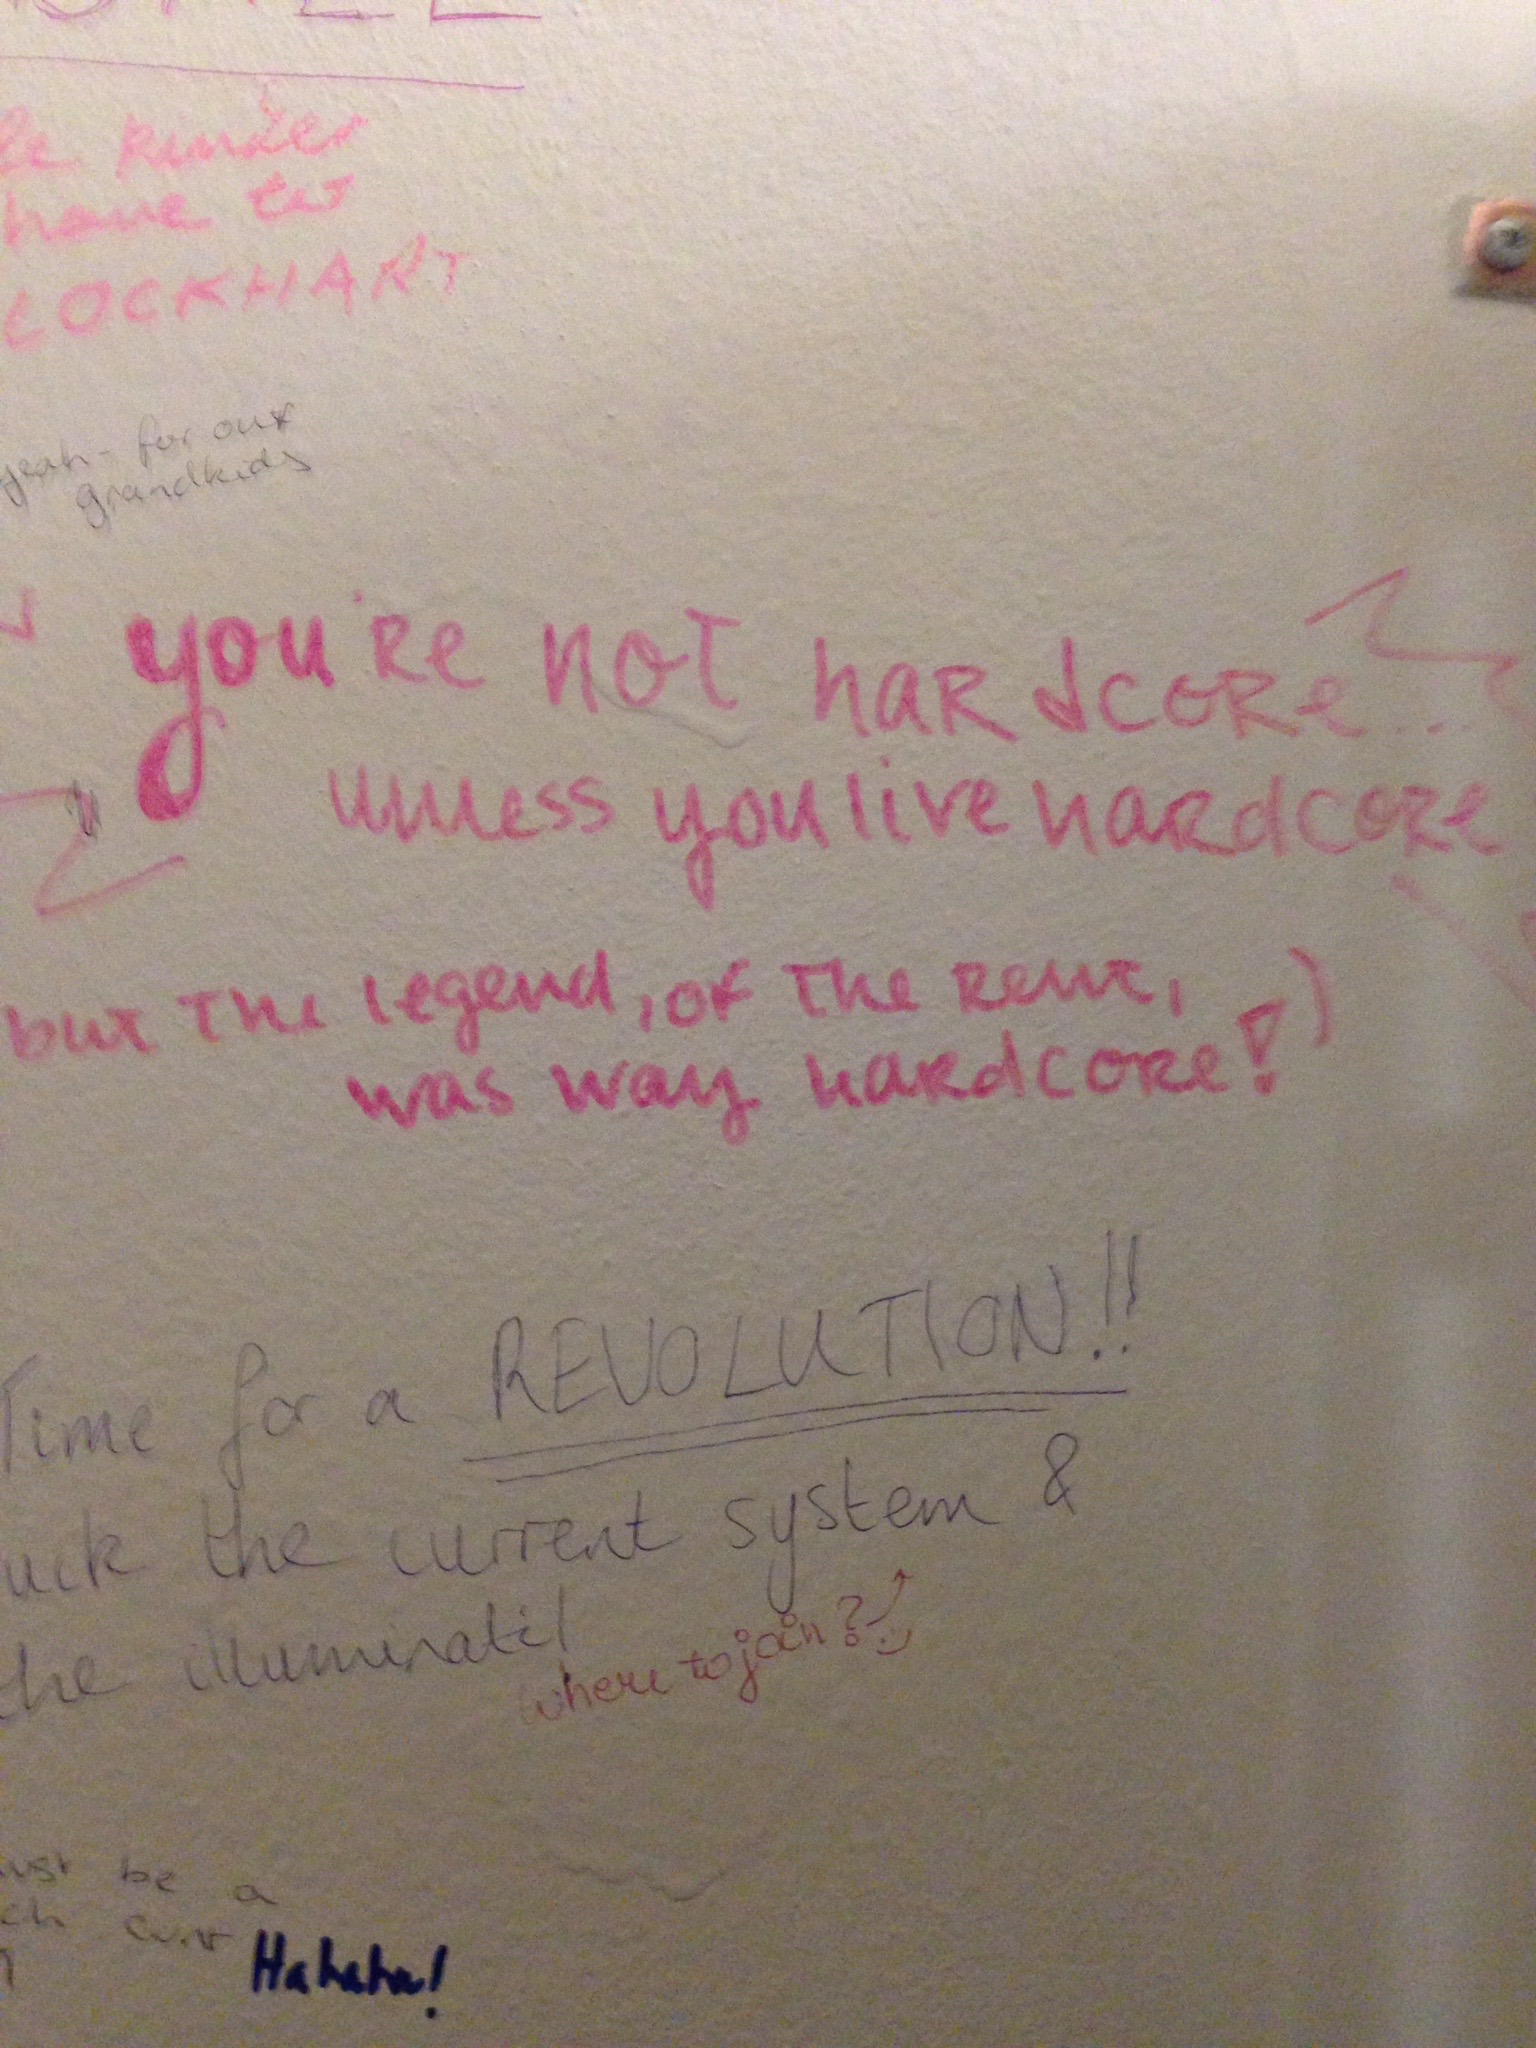 kinder
have to
LOCKHART
yeah - for our
grandkids
you're not hardcore...
unless you live hardcore
but the legend, of the rent,
was way hardcore!)
Time for a REVOLUTION!!
uck the current system &
the illuminati!
where to join? :)
ust be a
Hahaha!